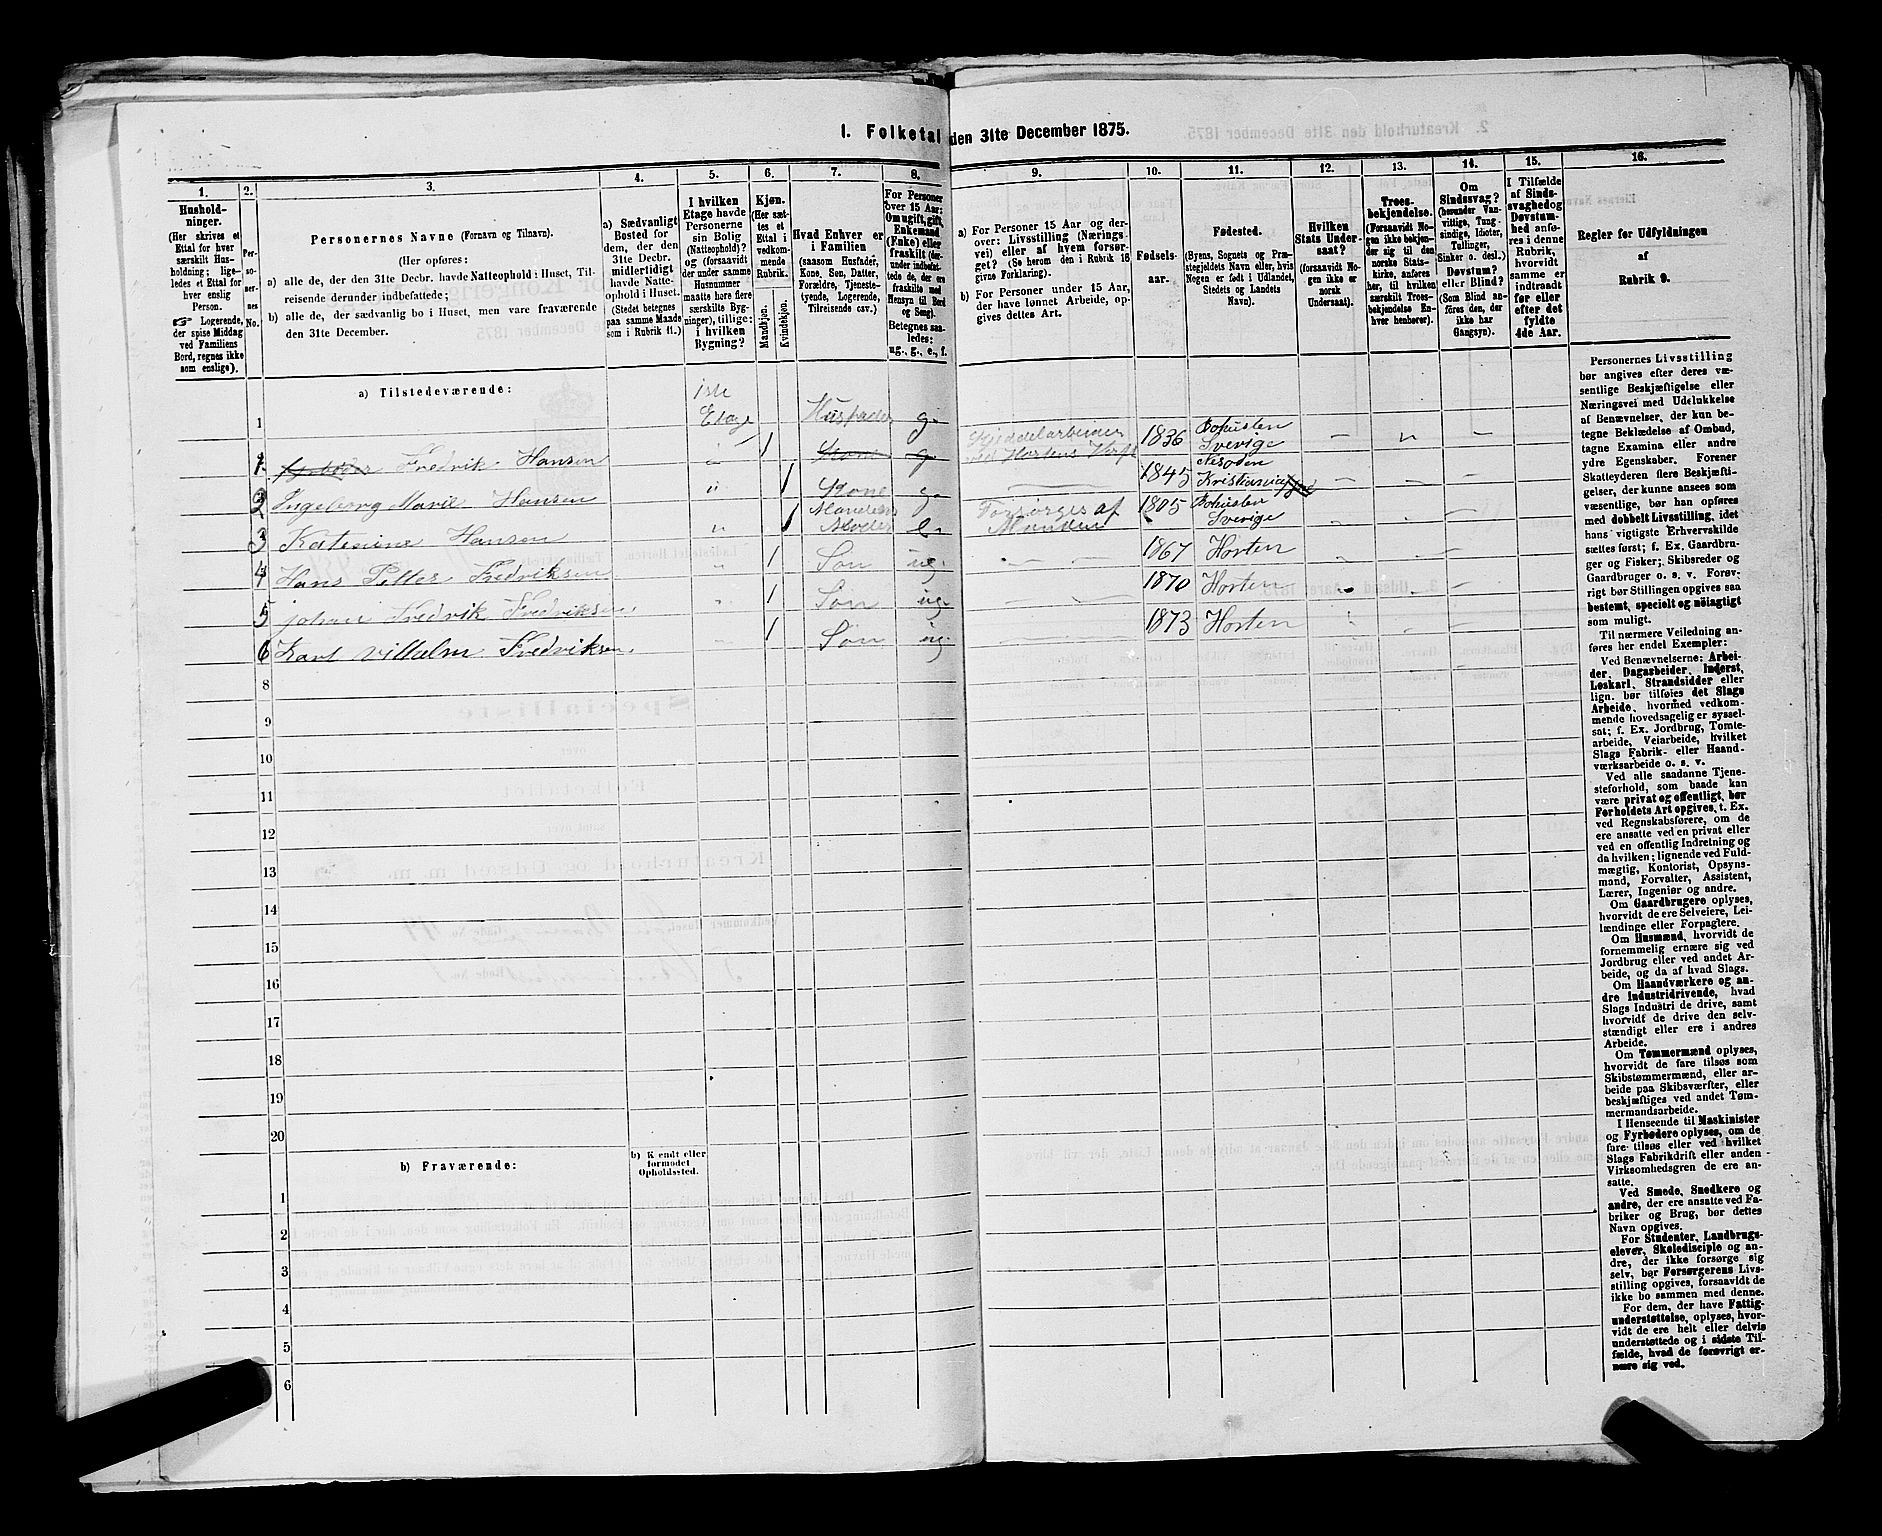 1. Folketal den 31te December 1875.
1. 2. 3. 4. 5. 6. 7. 8. 9. 10. 11. 12. 13. 14. 15. 16.
Hushold-
ninger.
(Her skrives et
Ettal for hver
særskilt Hus-
holdning; lige-
ledes et Ettal for
hver enslig
Person.
☞ Logerende,
der spise Middag
ved Familiens
Bord, regnes ikke
som enslige).
Per-
so-
ner-
nes
No.
Personernes Navne (Fornavn og Tilnavn).
(Her opføres:
a) alle de, der den 31te Decbr. havde Natteophold i Huset, Til-
reisende derunder indbefattede;
b) alle de, der sædvanlig bo i Huset, men vare fraværende
den 31te December.
a) Sædvanligt
Bosted for
dem, der den
31te Decbr.
midlertidigt
havde Natte-
ophold i Huset.
(Stedet betegnes
paa samme Maade
som i Rubrik 11.)
I hvilken
Etage havde
Personerne
sin Bolig
(Natteophold)?
og (forsaavidt
der under samme
Husnummer
maatte høre flere
særskilte Byg-
ninger), tillige:
i hvilken
Bygning?
Kjøn.
(Her sæt-
tes et
Ettal i
vedkom-
mende
Rubrik.
Mandkjøn.
Kvindekjøn.
Hvad Enhver er
i Familien
(saasom Husfader,
Kone, Søn, Datter,
Forældre, Tjeneste-
tyende, Logerende,
Tilreisende osv.).
For Personer
over 15 Aar:
Om ugift, gift,
Enkemand
(Enke) eller
fraskilt (der-
under indbefat-
tede de, der ere
fraskilte med
Hensyn til Bord
og Seng).
Betegnes saa-
ledes:
ug., g., e., f.
a) For Personer 15 Aar og der-
over: Livsstilling (Nærings-
vei) eller af hvem forsør-
get? (Se herom den i Rubrik 16
givne Forklaring).
b) For Personer under 15 Aar,
der have lønnet Arbeide, op-
gives dettes Art.
Fødsels-
aar.
Fødested.
(Byens, Sognets og Præ-
stegjeldets Navn eller, hvis
Nogen er født i Udlandet,
Stedets og Landets
Navn).
Hvilken
Stats Under-
saat?
(forsaavidt No-
gen ikke er
norsk
Undersaat).
Troes-
bekjendelse.
(Forsaavidt No-
gen ikke bekjen-
der sig til den
norske Stats-
kirke, anføres
her, til hvilken
særskilt Troes-
bekjendelse En-
hver henhører).
Om
Sindssvag?
(herunder Van-
vittige, Tung-
sindige, Idioter,
Tullinger,
Sinker o. desl.).
Døvstum?
eller Blind?
(Som Blind an-
føres den, der
ikke har
Gangsyn).
I Tilfælde
af Sinds-
svaghed og
Døvstum-
hed anfø-
res i denne
Rubrik,
hvorvidt
samme er
indtraadt
før eller
efter det
fyldte
4de Aar.
Regler for Udfyldningen
af
Rubrik 9.
a) Tilstedeværende:
1 1ste Etage Husfader g.
1. Fredrik Hansen 1 Kone g 1836 Bohuslen Sverige
2 Ingeborg Marie Hansen 1 Kone g. 1845 Nesoden Kristiania
3 Katerine Hansen 1 Mandens Moder e. Forsørges af Manden 1805 Bohuslen Sverige
4 Hans Petter Fredriksen 1 Søn ug. 1867 Horten
5 Johan Fredrik Fredriksen. 1 Søn ug. 1870 Horten
6 Karl Vilhelm Fredriksen. 1 Søn ug. 1873 Horten
8
9
10
11
12
13
14
15
16
17
18
19
20
b) Fraværende:
b) Kjendt eller
formodet
Opholdssted.
1
2
3
4
5
6
Personernes Livsstilling
bør angives efter deres væ-
sentlige Beskjæftigelse eller
Næringsvei med Udelukkelse
af Benævnelser, der kun be-
tegne Beklædelse af Ombud,
tagne Examina eller andre
ydre Egenskaber. Forener
Skatteyderen flere Beskjæfti-
gelser, der kunne ansees som
væsentlige, bør han opføres
med dobbelt Livsstilling, idet
hans vigtigste Erhvervskilde
sættes først; f. Ex. Gaardbru-
ger og Fisker; Skibsreder og
Gaardbruger o. s. v. Forøv-
rigt bør Stillingen opgives saa
bestemt, specielt og nöiagtigt
som muligt.
Til nærmere Veiledning an-
føres her endel Exempler:
Ved Benævnelserne: Arbei-
der, Dagarbeider, Inderst,
Løskarl, Strandsidder eller
lign. bør tilføies det Slags
Arbeide, hvormed vedkom-
mende hovedsagelig er syssel-
sat; f. Ex. Jordbrug, Tomte-
arbeide, Veiarbeide, hvilket
Slags Fabrik- eller Haand-
værksarbeide o. s. v.
Ved alle saadanne Tjene-
steforhold, som baade kan
være privat og offentligt, bør
Forholdets Art opgives, t. Ex.
ved Regnskabsførere, om de
ere ansatte ved en privat eller
ved en offentlig Indretning og
da hvilken; lignende ved Fuld-
mægtig, Kontorist, Opsyns-
mand, Forvalter, Assistent,
Lærer, Ingeniør og andre.
Om Gaardbrugere oplyses,
hvorvidt de ere Selveiere, Lei-
lændinge eller Forpagtere.
Om Husmænd, hvorvidt de
fornemmelig ernære sig ved
Jordbrug eller ved andet Ar-
beide, og da af hvad Slags.
Om Haandværkere og an-
dre Industridrivende, hvad
Slags Industri de drive, samt
hvorvidt de drive den selv-
stændigt eller ere i andres
Arbeide.
Om Tømmermænd oplyses,
hvorvidt de fare tilsøs som
Skibstømmermænd, eller ar-
beide paa Skibsværfter, eller
beskjæftiges ved andet Tøm-
mermandsarbeide.
I Henseende til Maskinister
og Fyrbødere oplyses, om de
fare tilsøs eller ved hvilket
Slags Fabrikdrift eller anden
Virksomhedsgren de ere an-
satte.
Ved Smede, Snedkere og
andre, der ere ansatte ved Fa-
briker og Brug, bør dettes
Navn opgives.
For Studenter, Landbrugs-
elever, Skoledisciple og an-
dre, der ikke forsørge sig
selv, bør Forsørgerens Livs-
stilling opgives, forsaavidt de
ikke bo sammen med denne.
For dem, der have Fattig-
understøttelse, oplyses, hvor-
vidt de ere helt eller delvis
understøttede og i sidste Til-
fælde, hvad de forøvrigt er-
nære sig ved.